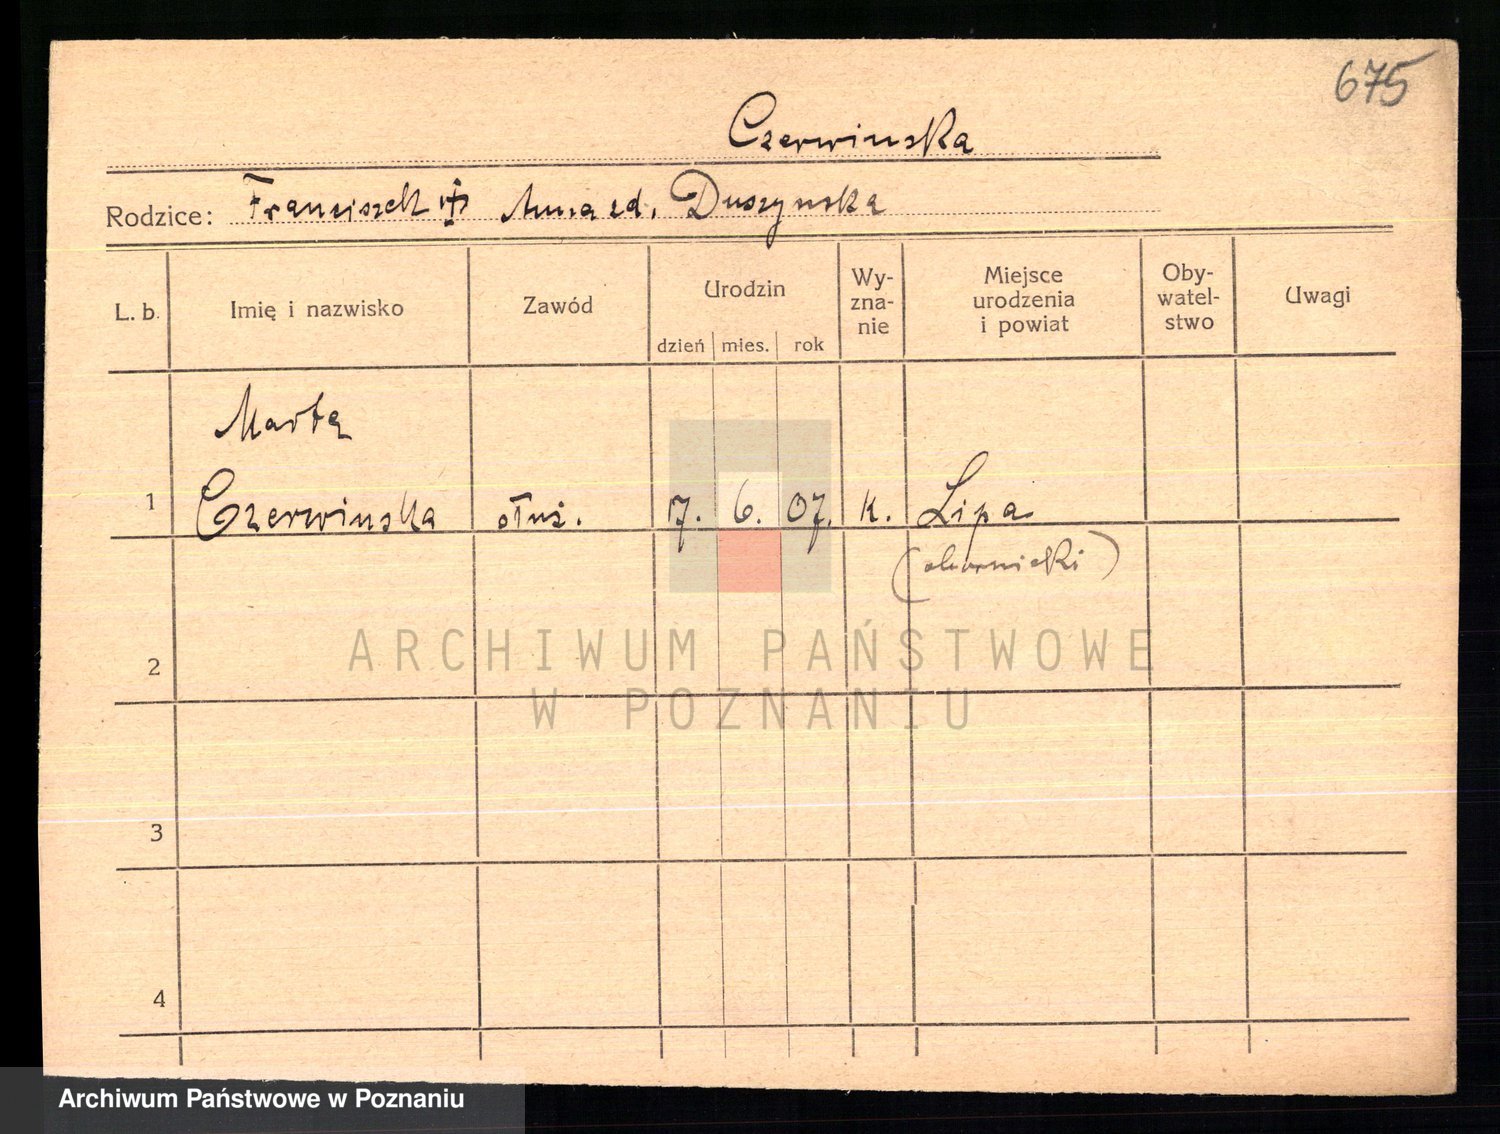 675
Czerwinska
Rodzice: Franciszek Anna zd. Duszynska
L. b. Imię i nazwisko Zawód Urodzin dzień mies. rok Wyznanie Miejsce urodzenia i powiat Obywatelstwo Uwagi
Marta
1 Czerwinska służ. 17. 6. 07. k. Lipa
(obornicki)
2
3
4
ARCHIWUM PAŃSTWOWE
W POZNANIU
Archiwum Państwowe w Poznaniu